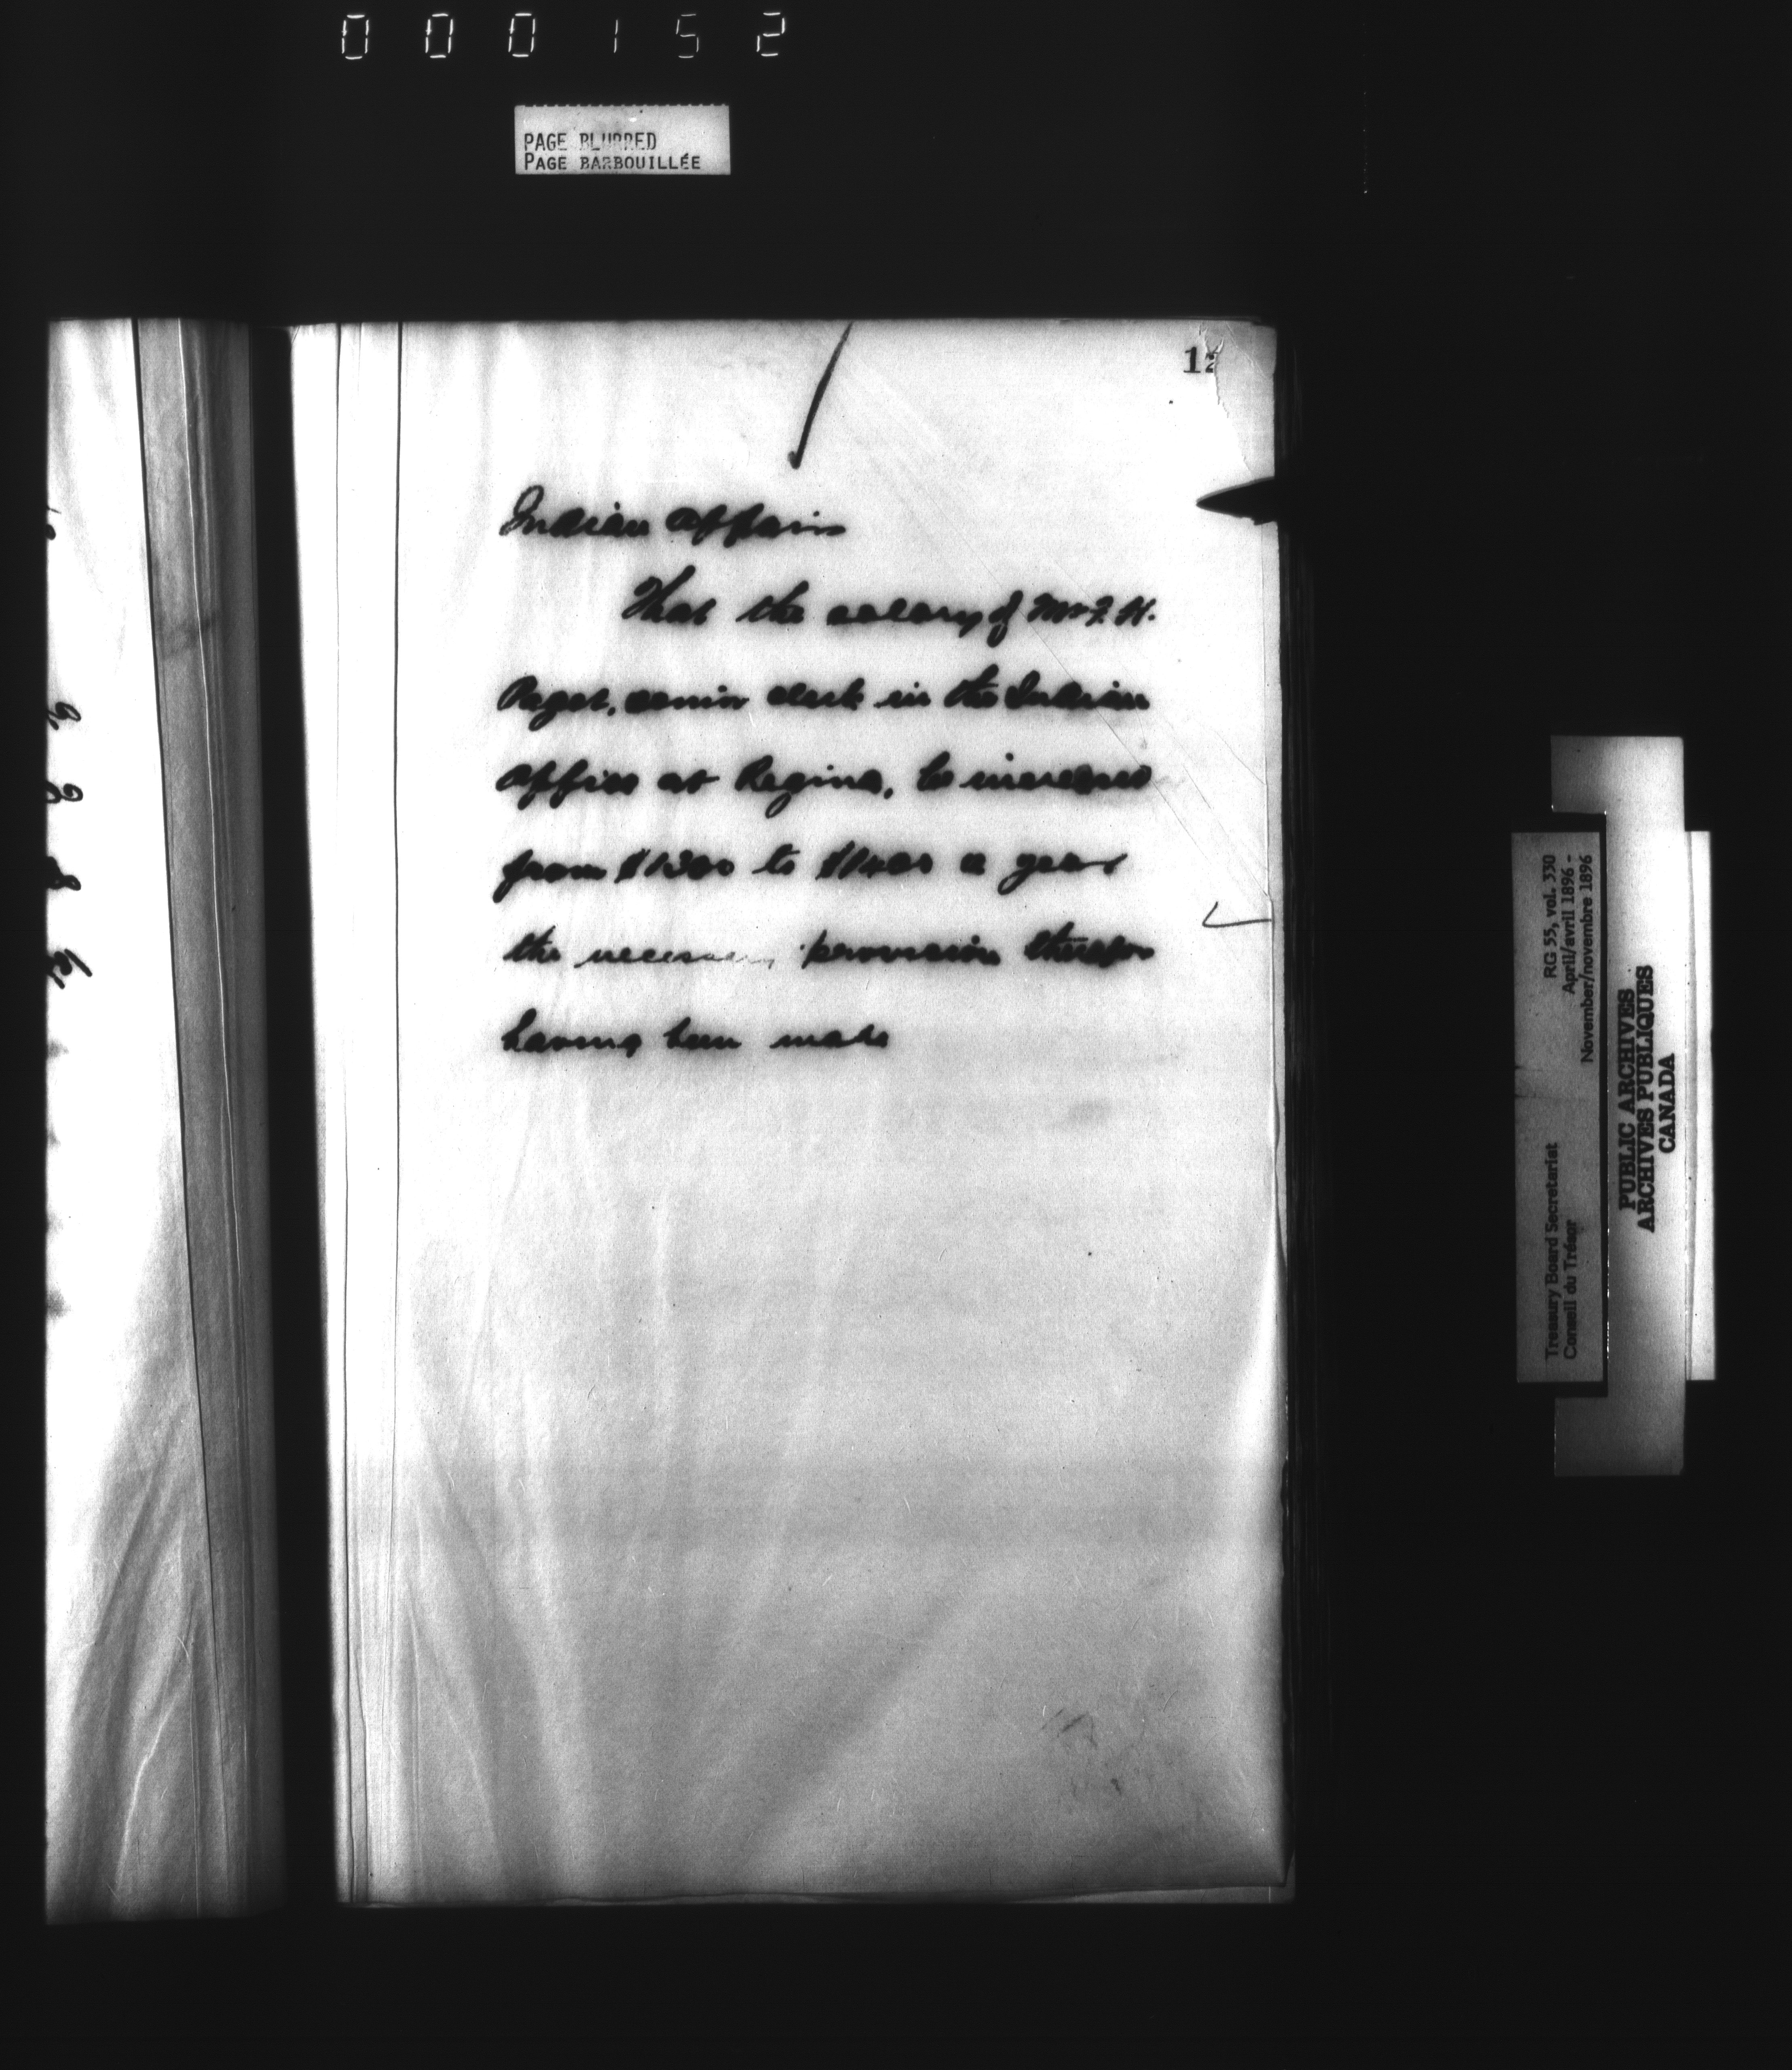 000152
PAGE BLURRED
PAGE BARBOUILLÉE
12
Indian Affairs
That the salary of Mr F. H.
Paget, senior clerk in the Indian
Office at Regina, be increased
from $1300 to $1400 a year
the necessary provision therefor
having been made
RG 55, vol. 330
April/avril 1896 -
November/novembre 1896
Treasury Board Secretariat
Conseil du Trésor
PUBLIC ARCHIVES
ARCHIVES PUBLIQUES
CANADA